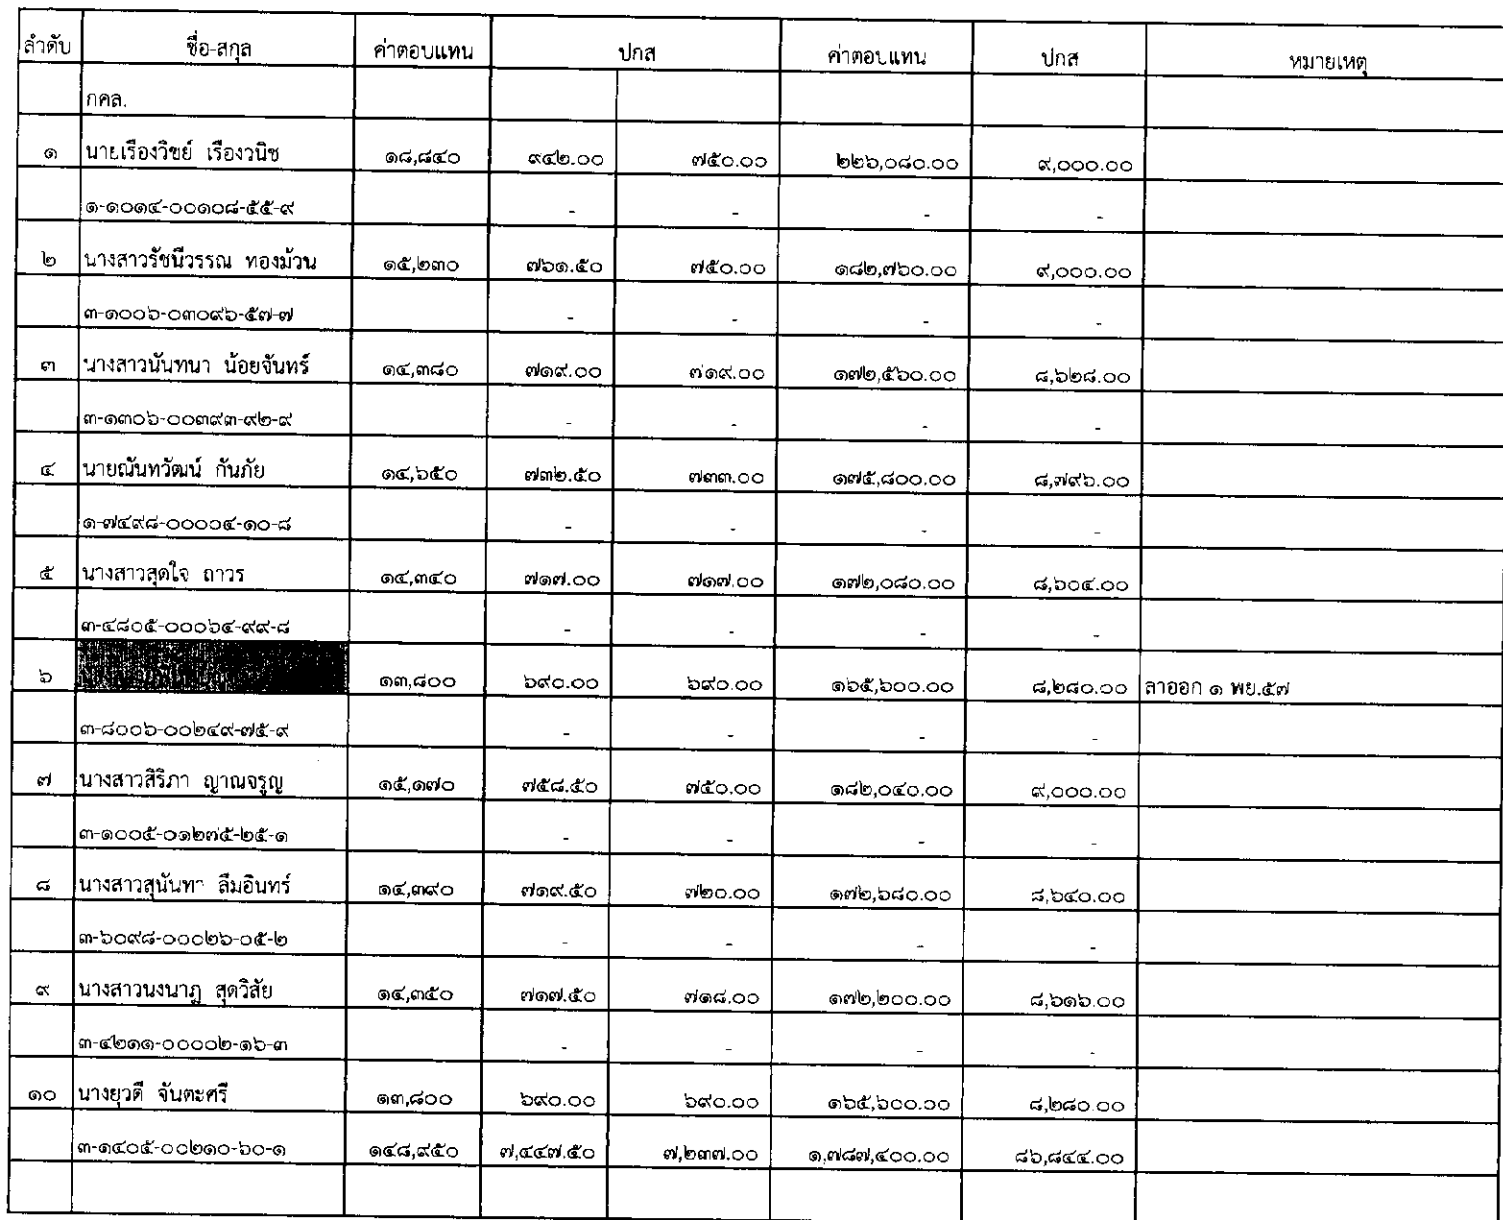 ลำดับ ชื่อ-สกุล ค่าตอบแทน ปกส ค่าตอบแทน ปกส หมายเหตุ
กคล.
๑ นายเรืองวิชย์ เรืองวนิช ๑๘,๘๔๐ ๙๔๒.๐๐ ๗๕๐.๐๐ ๒๒๖,๐๘๐.๐๐ ๙,๐๐๐.๐๐
๑-๑๐๑๔-๐๐๑๐๘-๕๕-๙ - - - -
๒ นางสาวรัชนีวรรณ ทองม้วน ๑๕,๒๓๐ ๗๖๑.๕๐ ๗๕๐.๐๐ ๑๘๒,๗๖๐.๐๐ ๙,๐๐๐.๐๐
๓-๑๐๐๖-๐๓๐๙๖-๕๗-๗ - - - -
๓ นางสาวนันทนา น้อยจันทร์ ๑๔,๓๘๐ ๗๑๙.๐๐ ๗๑๙.๐๐ ๑๗๒,๕๖๐.๐๐ ๘,๖๒๘.๐๐
๓-๑๓๐๖-๐๐๓๙๓-๙๒-๙ - - - -
๔ นายณันทวัฒน์ กันภัย ๑๔,๖๕๐ ๗๓๒.๕๐ ๗๓๓.๐๐ ๑๗๕,๘๐๐.๐๐ ๘,๗๙๖.๐๐
๑-๗๔๙๘-๐๐๐๐๔-๑๐-๘ - - - -
๕ นางสาวสุดใจ ถาวร ๑๔,๓๔๐ ๗๑๗.๐๐ ๗๑๗.๐๐ ๑๗๒,๐๘๐.๐๐ ๘,๖๐๔.๐๐
๓-๔๘๐๕-๐๐๐๖๔-๙๙-๘ - - - -
๖ ๑๓,๘๐๐ ๖๙๐.๐๐ ๖๙๐.๐๐ ๑๖๕,๖๐๐.๐๐ ๘,๒๘๐.๐๐ ลาออก ๑ พย.๕๗
๓-๘๐๐๖-๐๐๒๔๙-๗๕-๙ - - - -
๗ นางสาวสิริภา ญาณจรูญ ๑๕,๑๗๐ ๗๕๘.๕๐ ๗๕๐.๐๐ ๑๘๒,๐๔๐.๐๐ ๙,๐๐๐.๐๐
๓-๑๐๐๕-๐๑๒๗๕-๒๕-๑ - - - -
๘ นางสาวสุนันทา ลืมอินทร์ ๑๔,๓๙๐ ๗๑๙.๕๐ ๗๒๐.๐๐ ๑๗๒,๖๘๐.๐๐ ๘,๖๔๐.๐๐
๓-๖๐๙๘-๐๐๐๒๖-๐๕-๒ - - - -
๙ นางสาวนงนาฎ สุดวิสัย ๑๔,๓๕๐ ๗๑๗.๕๐ ๗๑๘.๐๐ ๑๗๒,๒๐๐.๐๐ ๘,๖๑๖.๐๐
๓-๔๒๑๑-๐๐๐๐๒-๑๖-๓ - - - -
๑๐ นางยุวดี จันตะศรี ๑๓,๘๐๐ ๖๙๐.๐๐ ๖๙๐.๐๐ ๑๖๕,๖๐๐.๐๐ ๘,๒๘๐.๐๐
๓-๑๔๐๕-๐๐๒๑๐-๖๐-๑ ๑๔๘,๙๕๐ ๗,๔๔๗.๕๐ ๗,๒๓๗.๐๐ ๑,๗๘๗,๔๐๐.๐๐ ๘๖,๘๔๔.๐๐